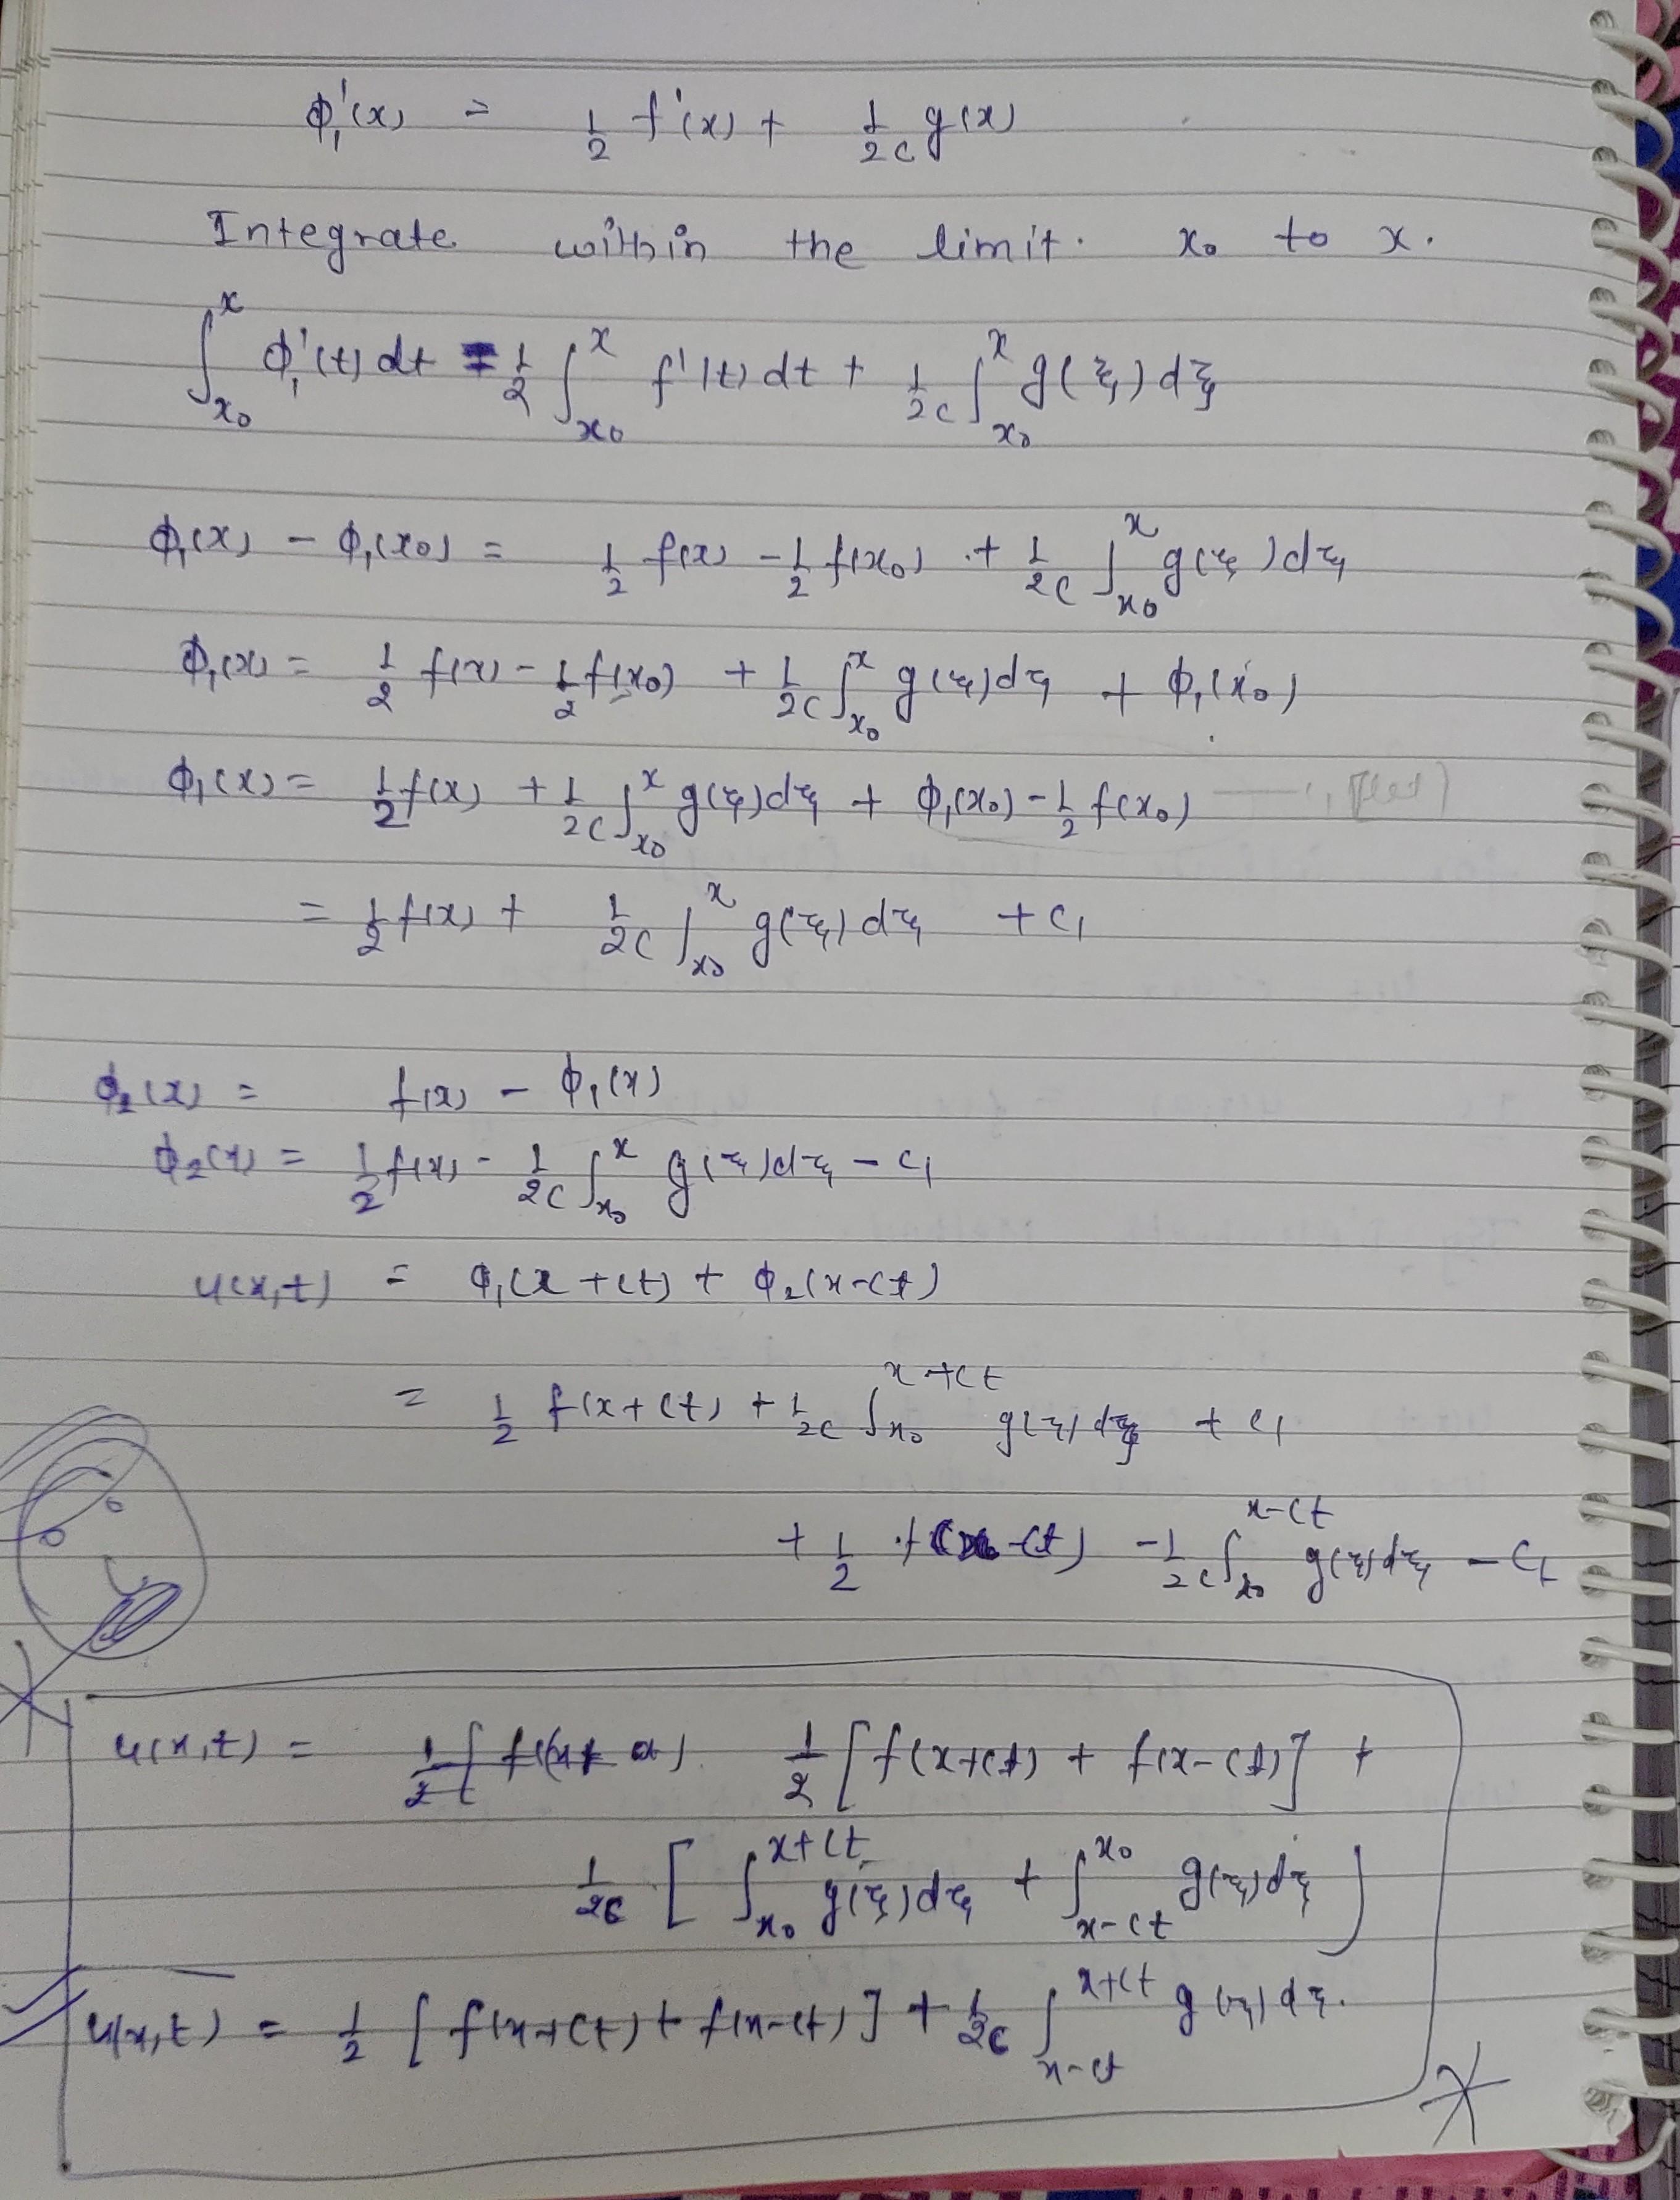 ϕ₁'(x) = 1/2 f'(x) + 1/2c g(x)
Integrate within the limit. x₀ to x.
∫_{x₀}^{x} ϕ₁'(t) dt = 1/2 ∫_{x₀}^{x} f'(t) dt + 1/2c ∫_{x₀}^{x} g(ξ) dξ
ϕ₁(x) - ϕ₁(x₀) = 1/2 f(x) - 1/2 f(x₀) + 1/2c ∫_{x₀}^{x} g(ξ) dξ
ϕ₁(x) = 1/2 f(x) - 1/2 f(x₀) + 1/2c ∫_{x₀}^{x} g(ξ) dξ + ϕ₁(x₀)
ϕ₁(x) = 1/2 f(x) + 1/2c ∫_{x₀}^{x} g(ξ) dξ + ϕ₁(x₀) - 1/2 f(x₀)
= 1/2 f(x) + 1/2c ∫_{x₀}^{x} g(ξ) dξ + c₁
ϕ₂(x) = f(x) - ϕ₁(x)
ϕ₂(x) = 1/2 f(x) - 1/2c ∫_{x₀}^{x} g(ξ) dξ - c₁
u(x,t) = ϕ₁(x+ct) + ϕ₂(x-ct)
= 1/2 f(x+ct) + 1/2c ∫_{x₀}^{x+ct} g(ξ) dξ + c₁
+ 1/2 f(x-ct) - 1/2c ∫_{x₀}^{x-ct} g(ξ) dξ - c₁
u(x,t) = 1/2 [f(x+ct) + f(x-ct)] +
1/2c [∫_{x₀}^{x+ct} g(ξ) dξ + ∫_{x-ct}^{x₀} g(ξ) dξ]
u(x,t) = 1/2 [f(x+ct) + f(x-ct)] + 1/2c ∫_{x-ct}^{x+ct} g(ξ) dξ.